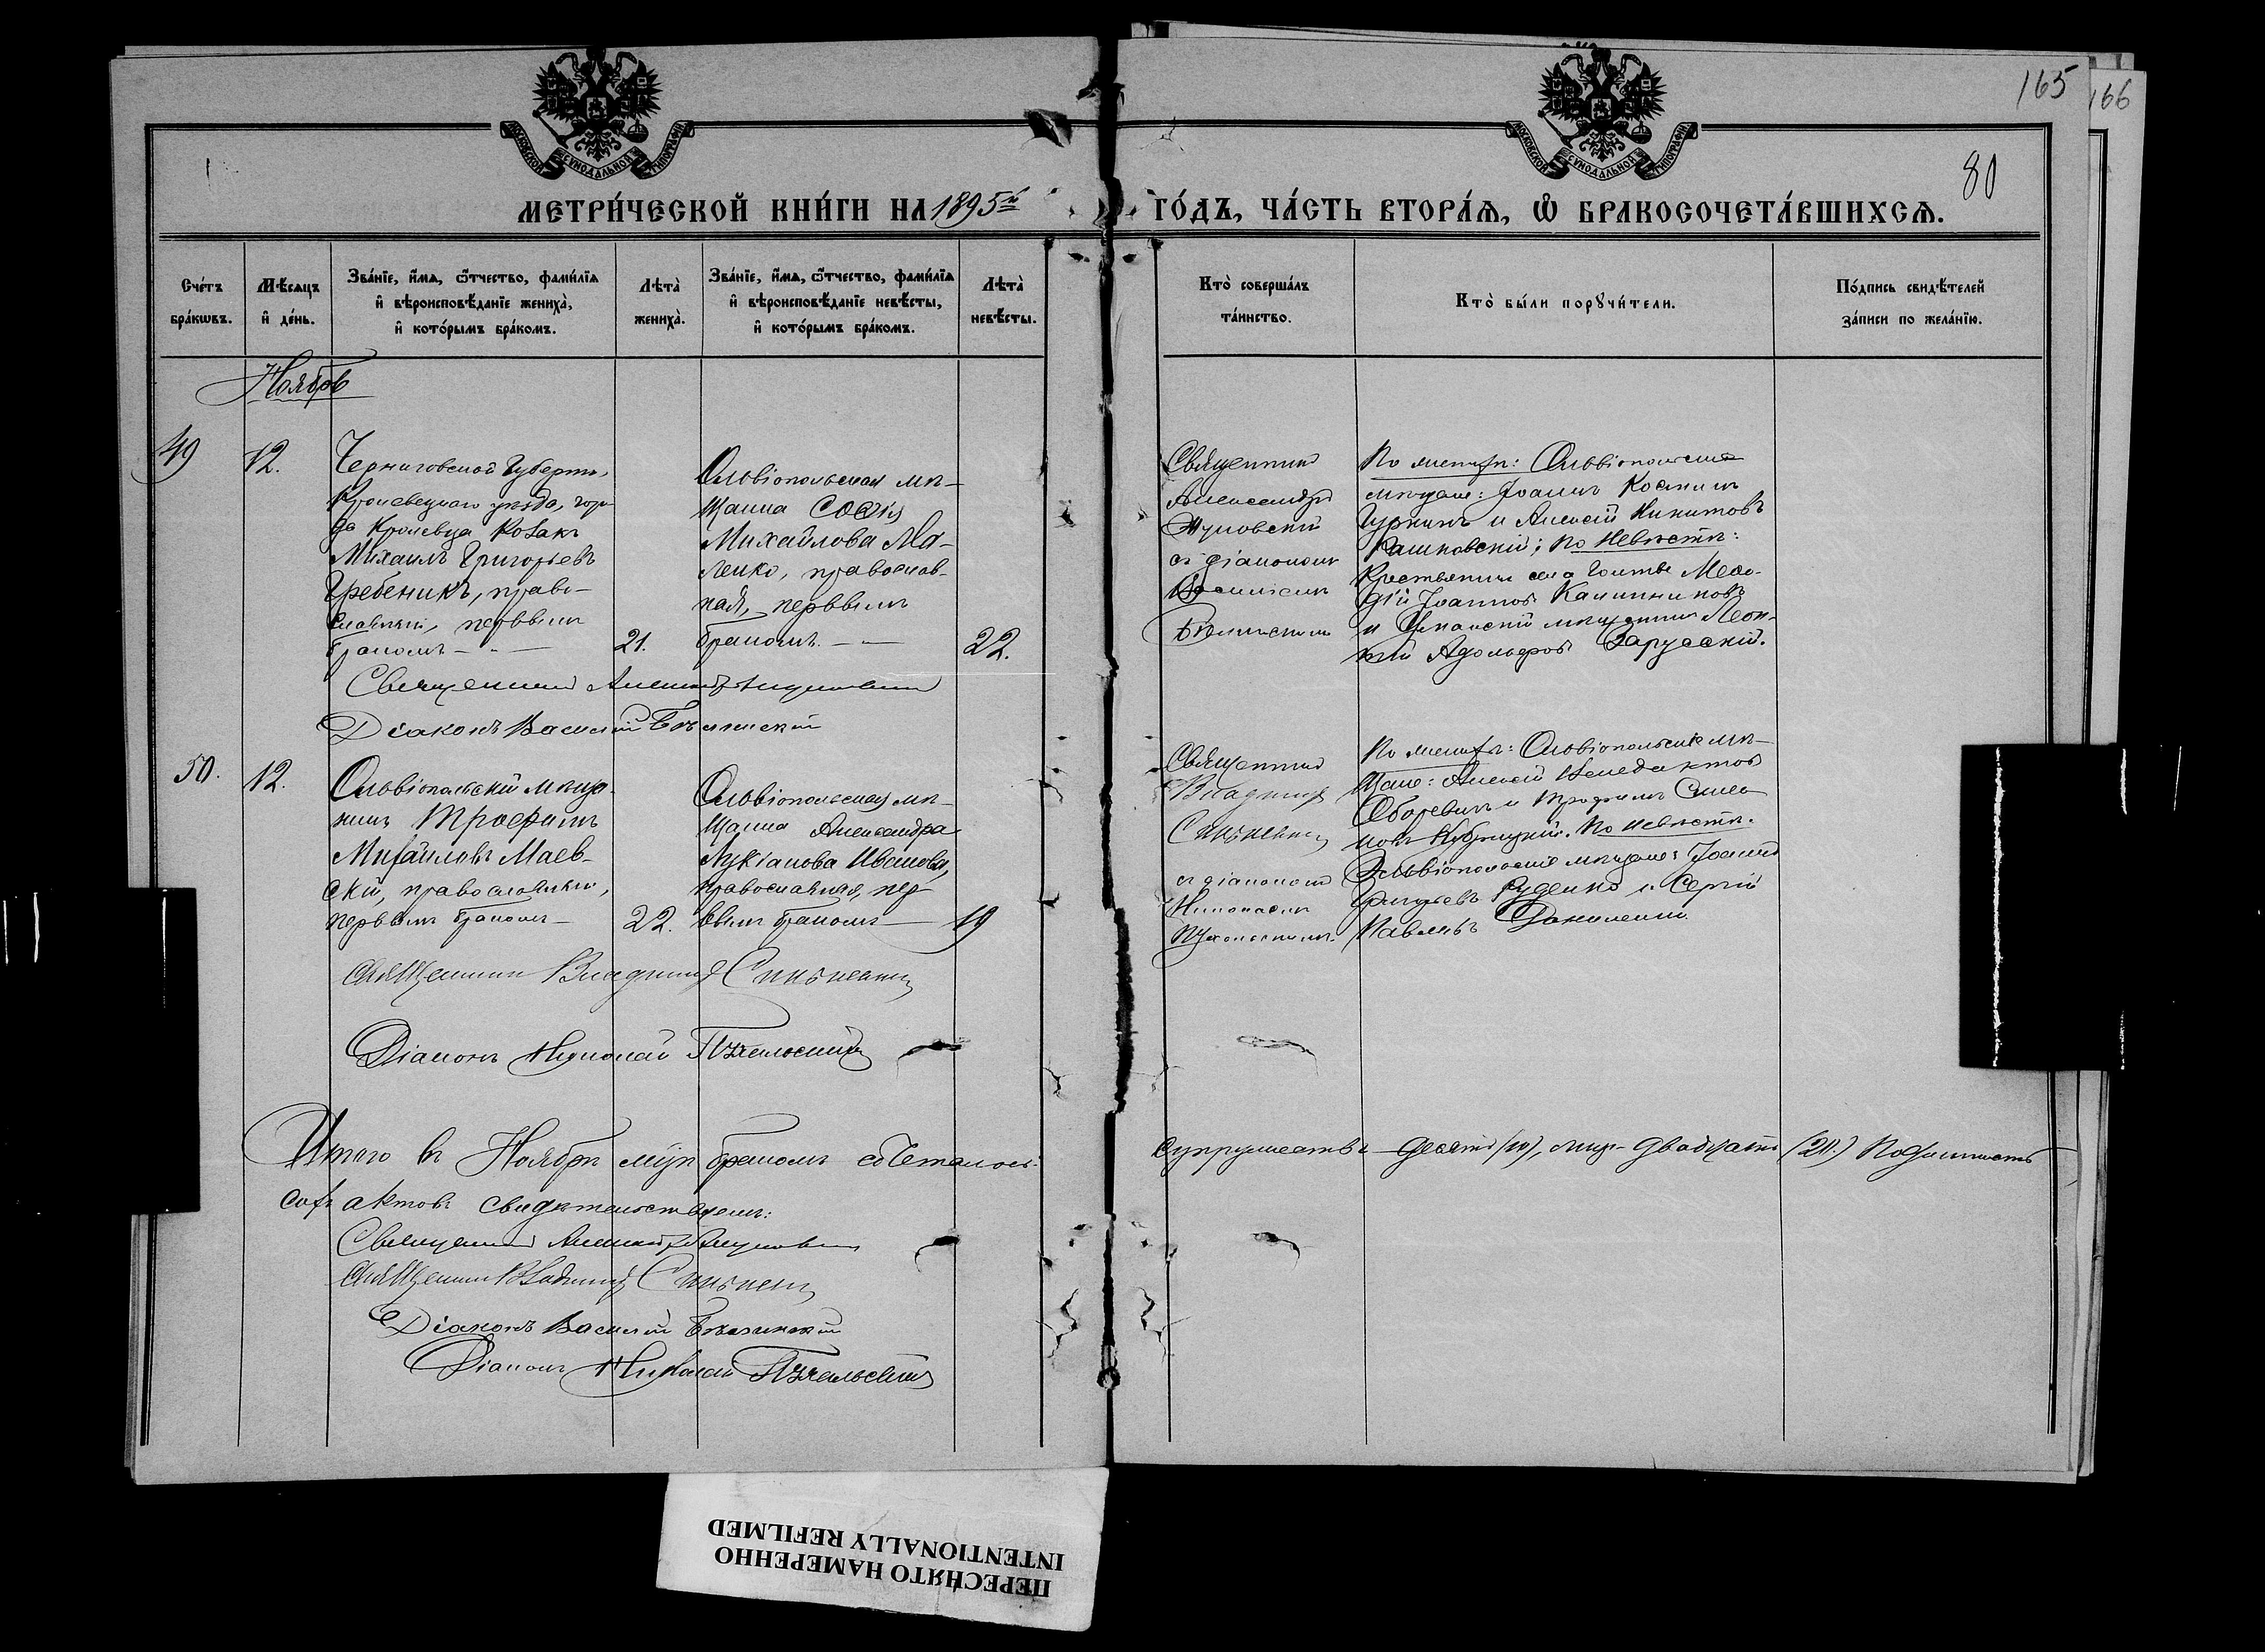 165
166
80
МОСКОВСКОЙ СѴНОДАЛЬНОЙ ТИПОГРАФІИ
МОСКОВСКОЙ СѴНОДАЛЬНОЙ ТИПОГРАФІИ
МЕТРИ́ЧЕСКОЙ КНИ́ГИ НА 1895й ГО́ДЪ, ЧА́СТЬ ВТОРА́Я, Ѡ҆ БРАКОСОЧЕТА́ВШИХСЯ.
Сче́тъ бра́кѡвъ.
Мѣ́сяцъ и҆ де́нь.
Зва́нїе, и҆́мя, ѻ҆́тчество, фами́лїя и҆ вѣроисповѣ́данїе жениха̀, и҆ кото́рымъ бра́комъ.
Лѣта̀ жениха̀.
Зва́нїе, и҆́мя, ѻ҆́тчество, фами́лїя и҆ вѣроисповѣ́данїе невѣ́сты, и҆ кото́рымъ бра́комъ.
Лѣта̀ невѣ́сты.
Кто̀ соверша́лъ та́инство.
Кто̀ бы́ли порꙋчи́тели.
По́дпись свидѣ́телей за́писи по жела́нїю.
Ноябрь
49
12.
Черниговской Губерніи,
Кролевецкаго уѣзда, горо-
да Кролевца козакъ
Михаилъ Григорьевъ
Гребеникъ, право-
славный, первымъ
бракомъ
21.
Ольвіопольская мѣ-
щанка Софія
Михайлова Ма-
ленко, православ-
ная, первымъ
бракомъ
22.
Священникъ
Александръ
съ діакономъ
Василіемъ
Бѣлинскимъ
По женихѣ: Ольвіопольскіе
мѣщане: Іоаннъ Косминъ
Гуркинъ и Алексій Никитовъ
Рашковскій; по невѣстѣ:
Крестьянинъ села Голтвы Меѳо-
дій Іоанновъ Калининковъ
и Уманскій мѣщанинъ Леон-
тій Адольфовъ Зарусскій.
Священникъ Александръ
Діаконъ Василій Бѣлинскій
50.
12.
Ольвіопольскій мѣща-
нинъ Трофимъ
Михайловъ Маев-
скій, православный,
первымъ бракомъ
22.
Ольвіопольская мѣ-
щанка Александра
Лукіанова Иванова,
православная, пер-
вымъ бракомъ
19
Священникъ
Владиміръ
съ діакономъ
Николаемъ
По женихѣ: Ольвіопольскіе мѣ-
щане: Алексій Венедиктовъ
и Трофимъ Симео-
новъ По невѣстѣ.
Ольвіопольскіе мѣщане: Іоаннъ
Григорьевъ Руденко и Сергій
Павловъ Даниленко.
Священникъ Владиміръ
Діаконъ Николай
Итого въ Ноябрѣ мѣсяцѣ бракомъ сочеталось супружествъ десять (10), лицъ двадцать (20.) Подлинность
сихъ актовъ свидѣтельствуемъ:
Священникъ Александръ
Священникъ Владиміръ
Діаконъ Василій Бѣлинскій
Діаконъ Николай
ПЕРЕСНЯТО НАМЕРЕННО
INTENTIONALLY REFILMED